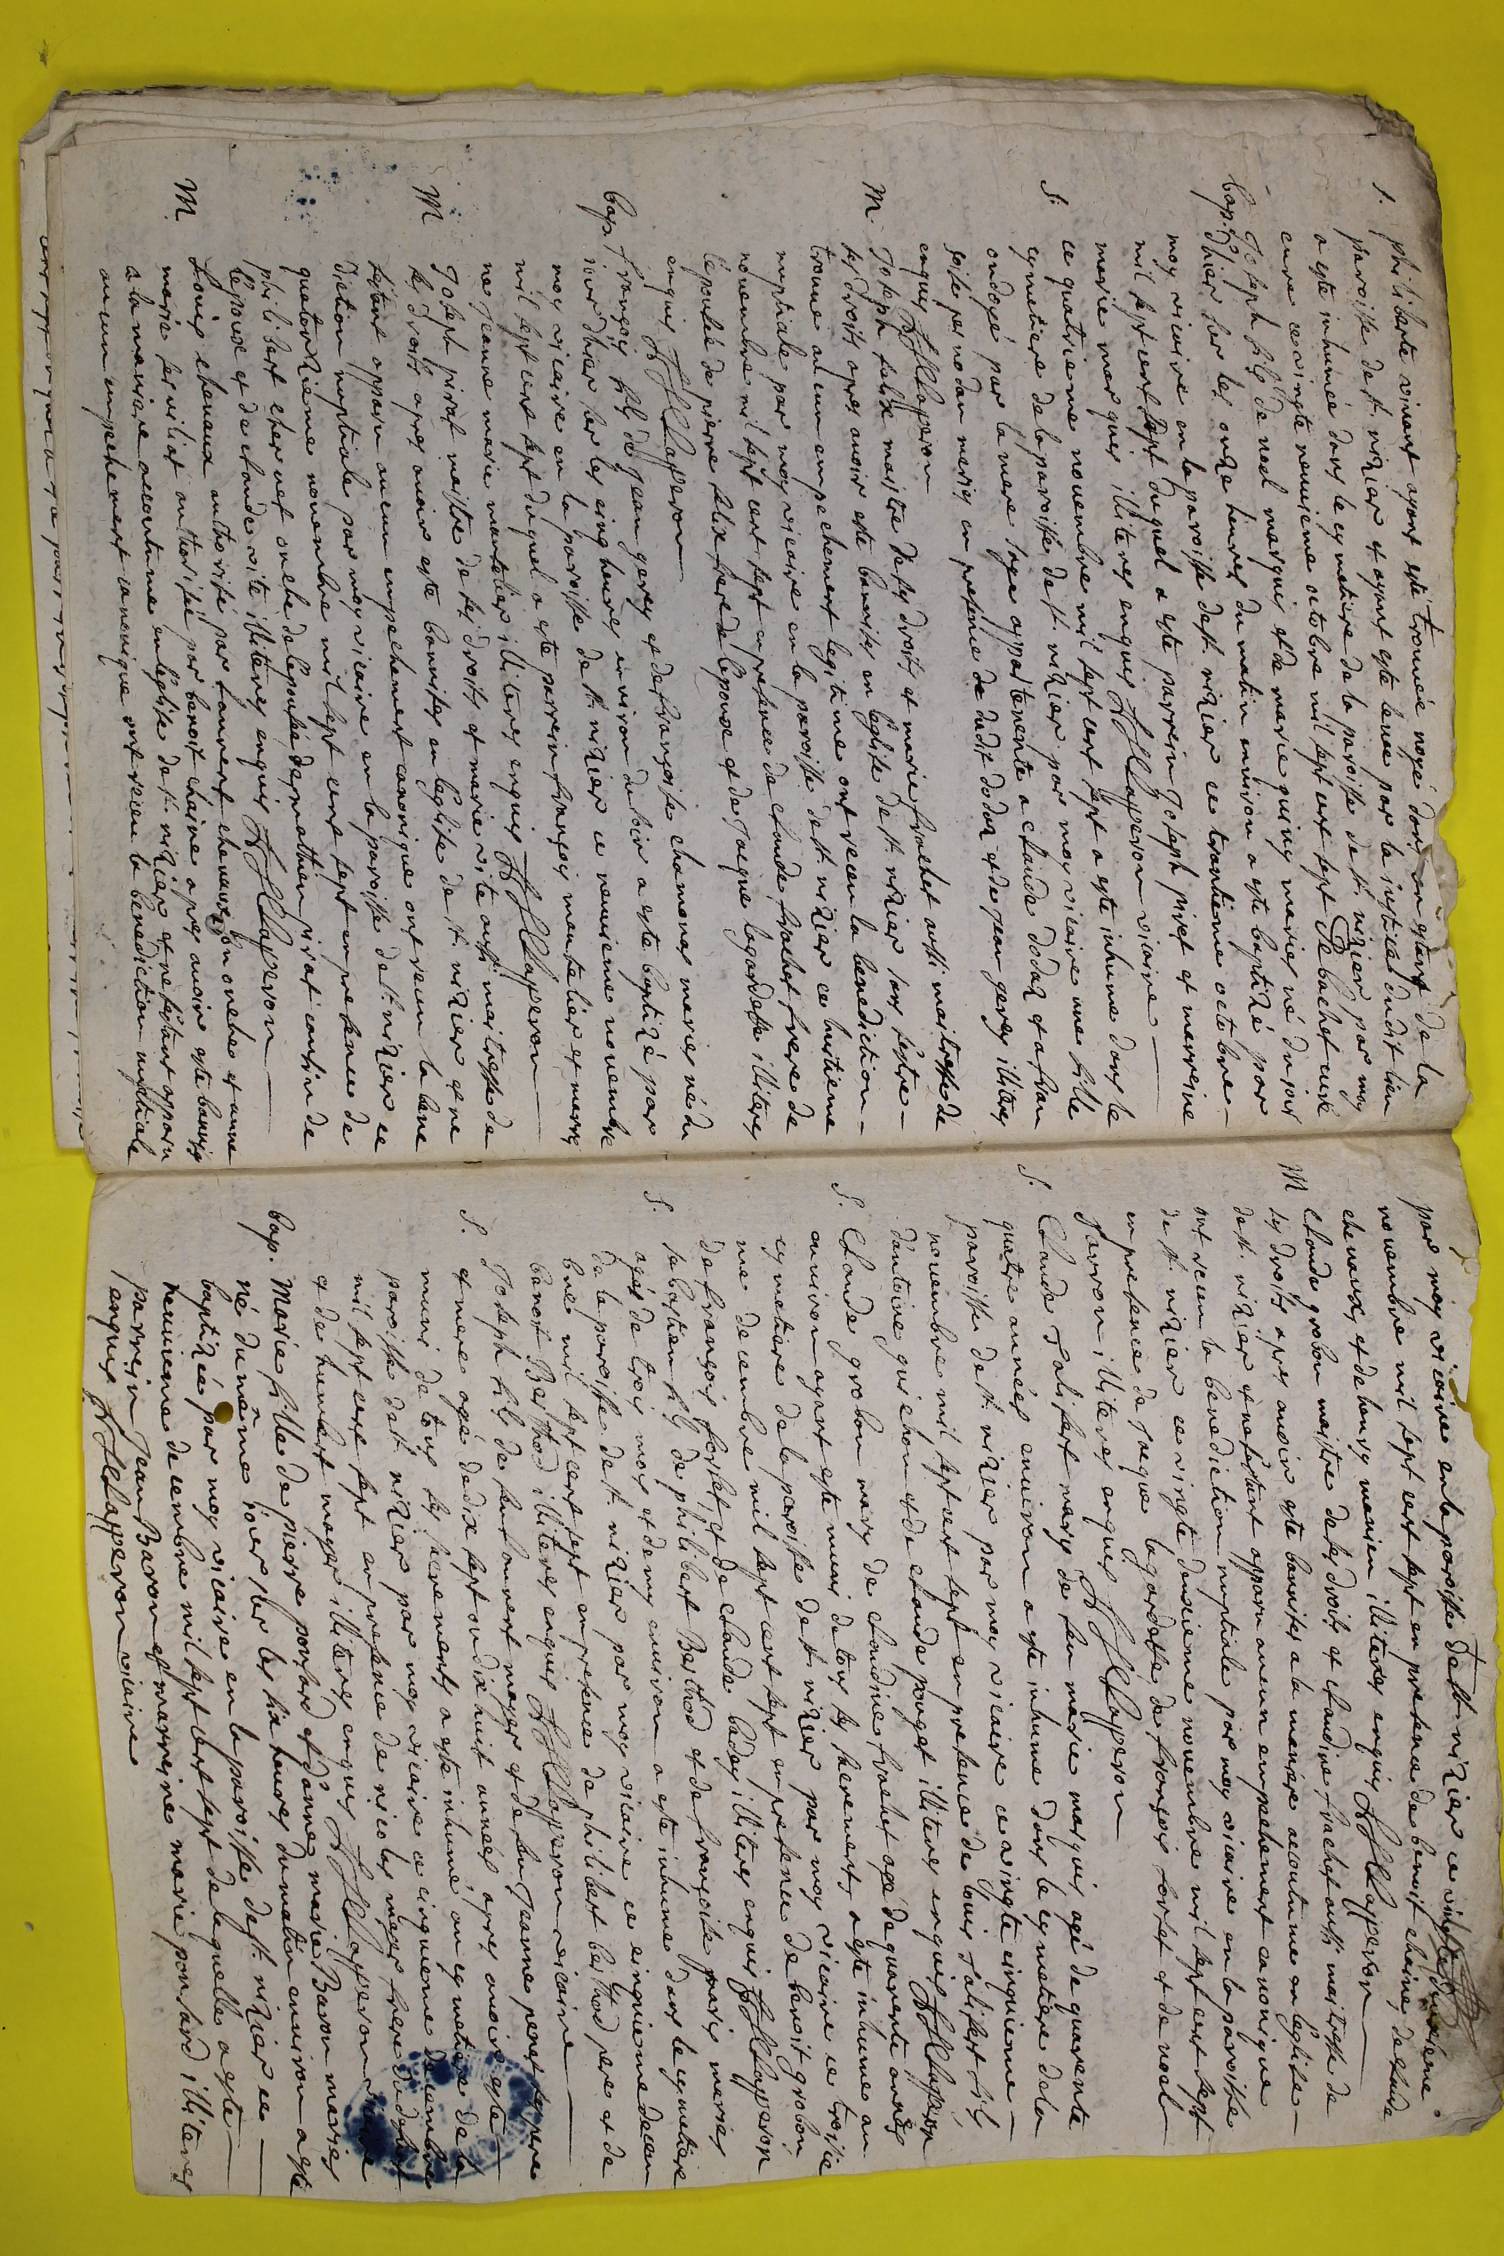 S. philiberte vinant ayant esté trouvée noyé dans un estang de la
paroisse de st. nizier et ayant esté levée par la justice dudit lieu
a esté inhumée dans le cymetiere de la paroisse de st. nizier par moy
curé ce vingte neuvieme octobre mil sept cent sept Rebachet curé
Bap. Joseph fils de noel marquis et de marie guiny mariés né du jour
d'hier sur les onze heures du matin environ a esté baptizé par
moy vicaire en la paroisse de st. nizier ce trantieme octobre
mil sept cent sept duquel a esté parrein Joseph pivet et marreine
marie marquis illiteres enquis Claperon vicaire
S. ce quatrieme novembre mil sept cent sept a esté inhume dans le
cymetiere de la paroisse de st. nizier par moy vicaire une fille
ondoyé par la mere sage appartenente a claude dodat et a fran
çoise pernodon mariés en presence de dudit dodat et de jean gerey illiteres
enquis Claperon
M. Joseph felix maistre de ses droits et marie frachet aussi maitresse de
ses droits apres avoir esté bannises en leglise de st. nizier sans s'estre
trouvé aucun empechement legitime ont receu la benediction
nuptiale par moy vicaire en la paroisse de st. nizier ce huitieme
novembre mil sept cent sept en presence de claude frachet frere de
l'epousée de pierre felix frere de lepoux et de Jacque lagardette illiteres
enquis Claperon
Bap. françois fils de Jean gerey et de françoise chamonar mariés né du
jour d'hier sur les cinq heures environ du soir a esté baptizé par
moy vicaire en la paroisse de st. nizier ce neuvieme novembre
mil sept cent sept duquel a esté parrein françois montelier et marrei
ne Jeanne marie montelier illiteres enquis Claperon
M Joseph pirat maistre de ses droits et marie vite aussi maitresse de
ses droits apres avoir esté bannises en leglise de st. nizier et ne
s'estant apparu aucun empechement canonique ont receu la bene
diction nuptiale par moy vicaire en la paroisse de st. nizier ce
quatorzieme novembre mil sept cent sept en presence de
philibert chernet oncle de lepousée de mathieu pirat cousin de
lepoux et de claude vite illiteres enquis Claperon
M. Louis chevaux authorisé par laurent chevaux son oncle et anne
marie servilliat authorisée par benoit chaine apres avoir esté bannises
a la maniere accoutumé en leglise de st. nizier et ne s'estant apparu
aucun empechement canonique ont receu la benediction nuptiale
par moy vicaire en la paroisse de st. nizier ce vingte
novembre mil sept cent sept en presence de benoit chaine de claude
chevaux et de henry monin illiteres enquis Claperon
M Claude grobon maistre de ses droits et claudine frachet aussi maitresse de
ses droits apres avoir esté bannises a la maniere accoutumé en leglise
de st. nizier et ne s'estant apparu aucun empechement canonique
ont receu la benediction nuptiale par moy vicaire en la paroisse
de st. nizier ce vingte deuxieme novembre mil sept cent sept
en presence de Jacque lagardette de françois forlet et de noel
Favron illiteres enquis Claperon
S. Claude Jalifert mary de feu marie marquis agé de quarente
quatre années environ a esté inhume dans le cymetiere de la
paroisse de st. nizier par moy vicaire ce vingte cinquieme
novembre mil sept cent sept en presence de louis Jalifert fils
d'antoine guichon et de claude pouget illiteres enquis Claperon
S. Claude grobon mary de claudine frachet agé de quarente années
environ ayant esté muni de tous ses sacrements a esté inhume au
cymetiere de la paroisse de st. nizier par moy vicaire ce troisie
me decembre mil sept cent sept en presence de benoit grobon
de françois forlet et de claude baday illiteres enquis Claperon
S. sebastien fils de philibert Berthod et de françoise paris mariés
agés de trois mois et demy environ a esté inhume dans le cymetiere
de la paroisse de st. nizier par moy vicaire ce cinquieme decem
bre mil sept cent sept en presence de philibert berthod pere et de
benoit Berthod illiteres enquis Claperon vicaire
S. Joseph fils de feu laurent moyer et de feu Jeanne peret ses pere
et mere agé de dix sept ou dix huit années apres avoir esté
muni de tous ses sacrements a esté inhumé au cymetiere de la
paroisse de st. nizier par moy vicaire ce cinquieme decembre
mil sept cent sept en presence de nicolas moyer frere du deffunt
et de humbert moyer illiteres enquis Claperon vicaire
Bap. Marie fille de pierre ponsard et d'anne marie Baron mariés
né du même jour sur les six heures du matin environ a esté
baptizée par moy vicaire en la paroisse de st. nizier ce
neuvieme decembre mil sept cent sept de laquelle a esté
parrein Jean Baron et marreine marie ponsard illiteres
enquis Claperon vicaire